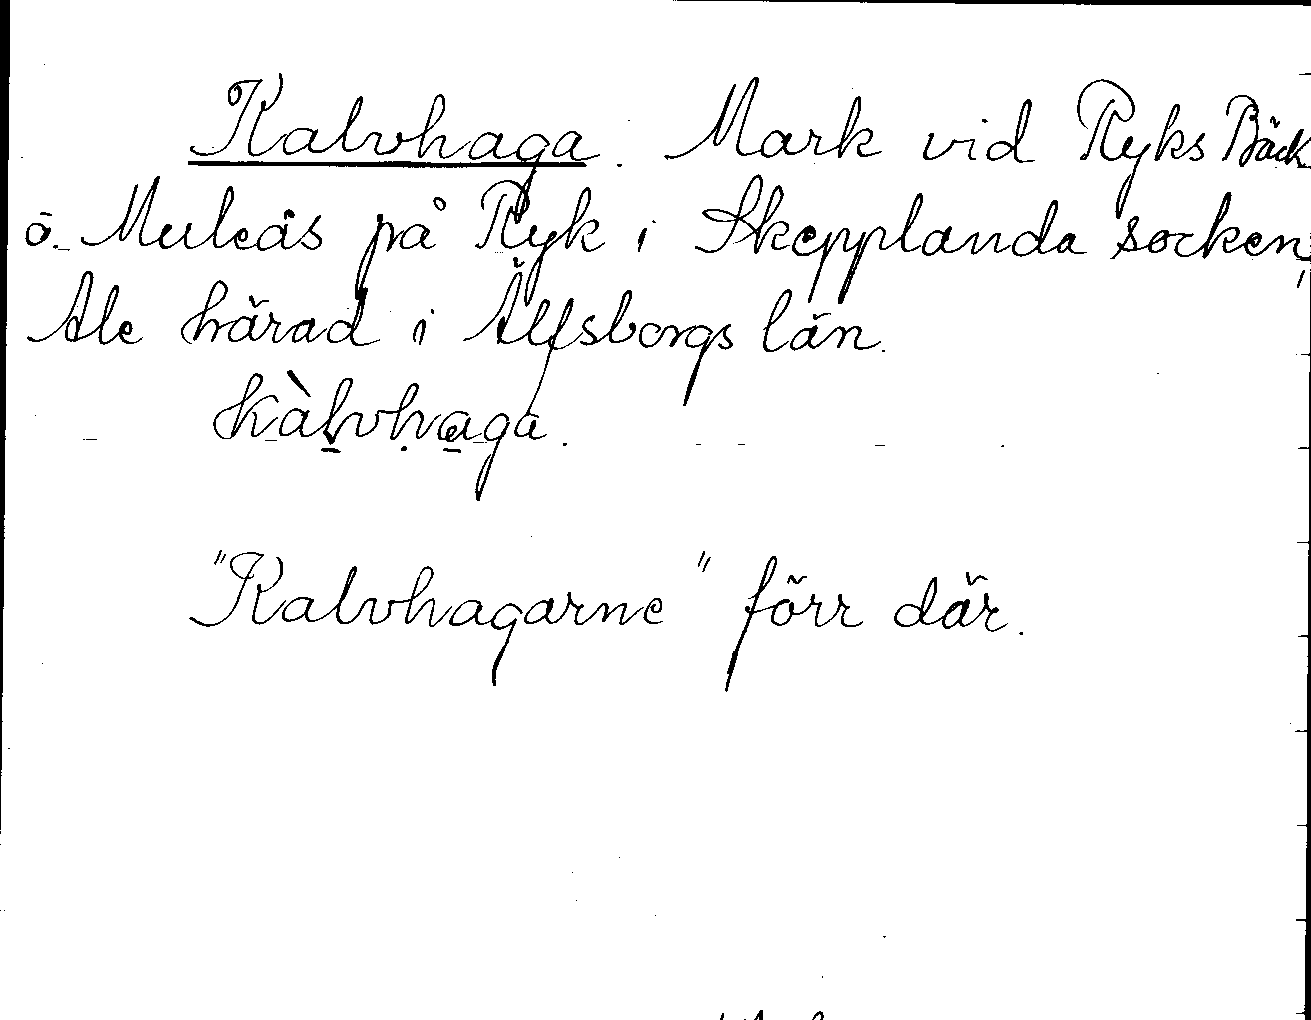 Kalvhaga. Mark vid Ryks Bäck
ö. Muleås på Ryk i Skepplanda socken,
Ale härad i Älfsborgs län.
kàlvhaga.
"Kalvhagarne" förr där.